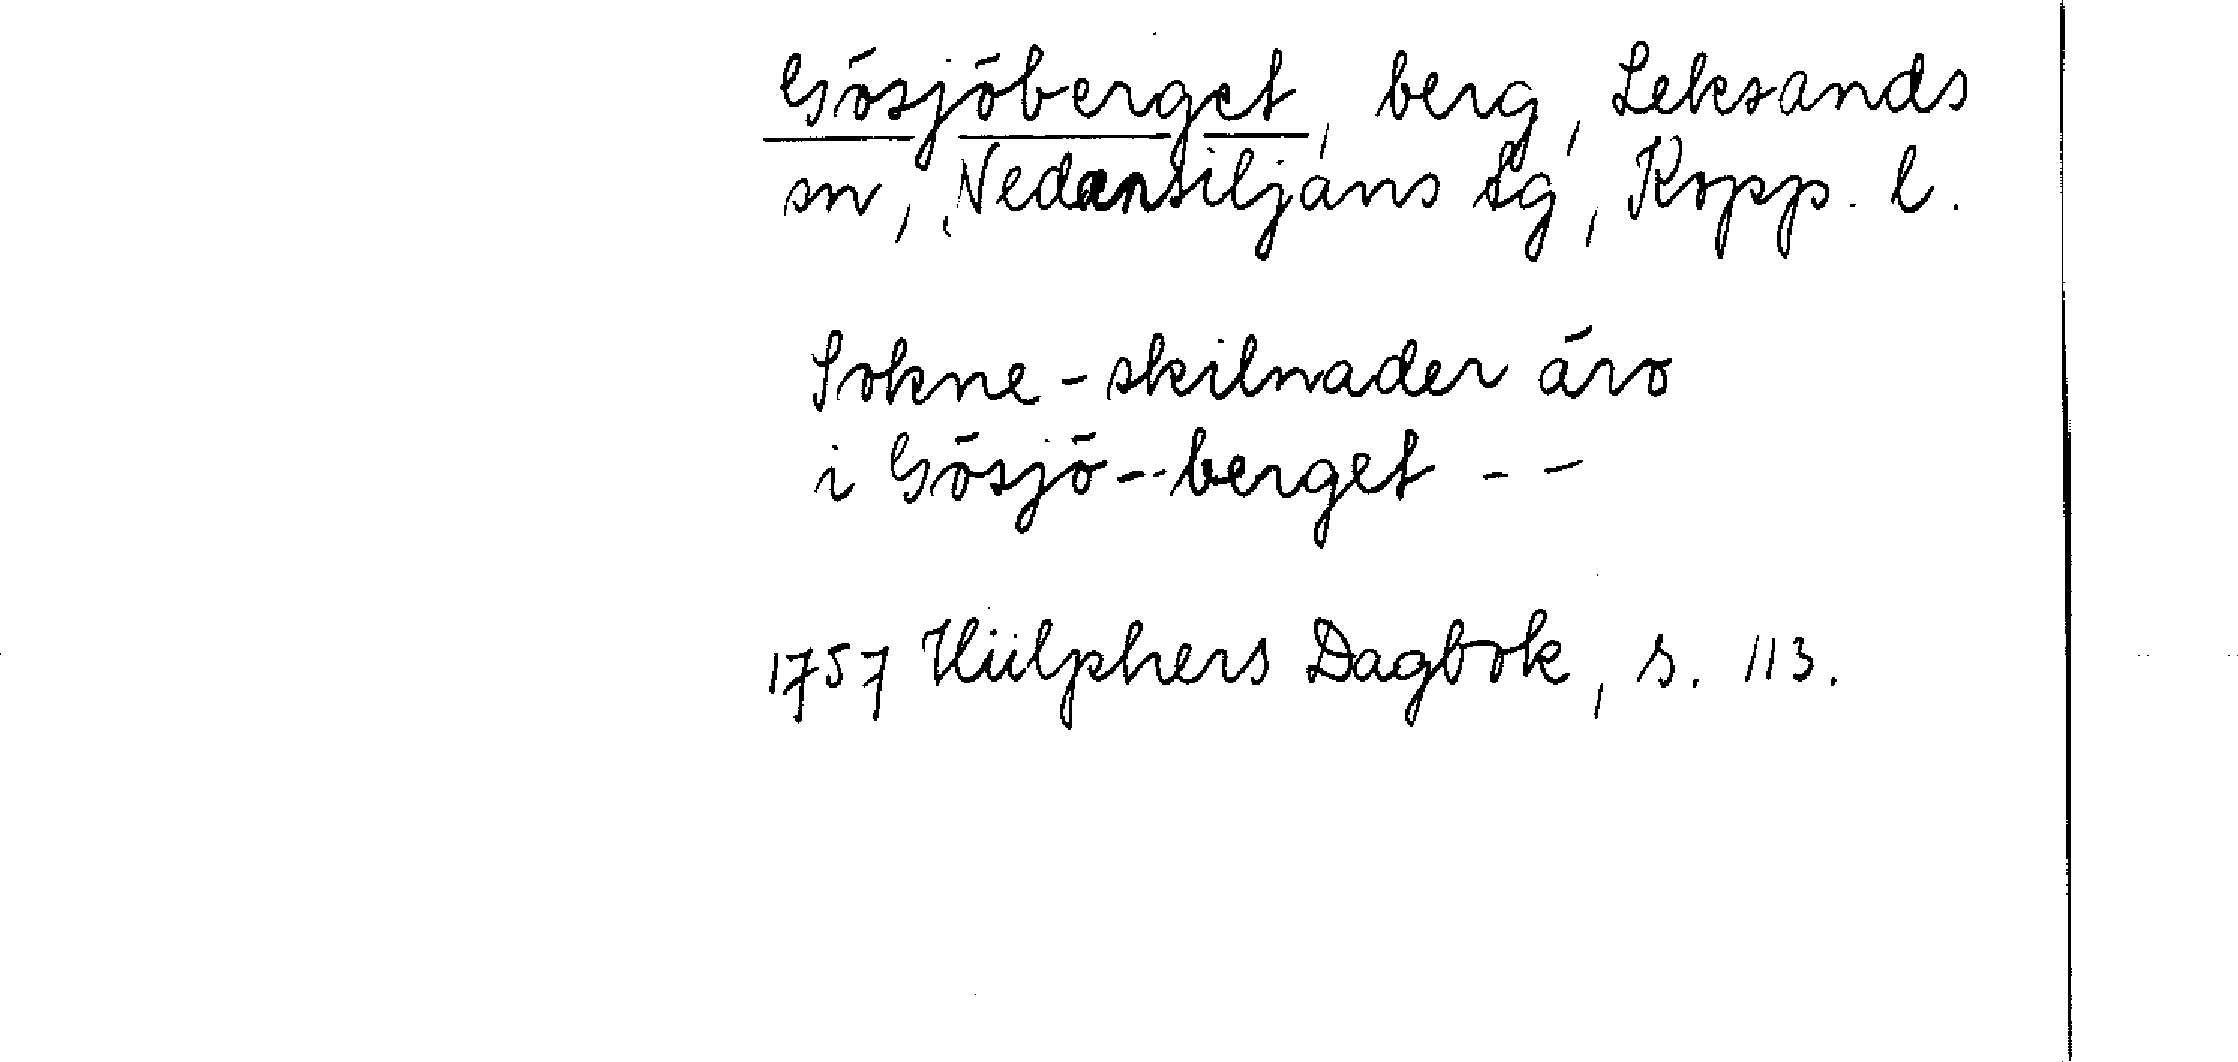 Gösjöberget, berg, Leksands
sn, Nedansiljans tg, Kopp. l.
Sokne-skilnader äro
i Gösjö--berget - -
1757 Hülphers Dagbok, s. 113.